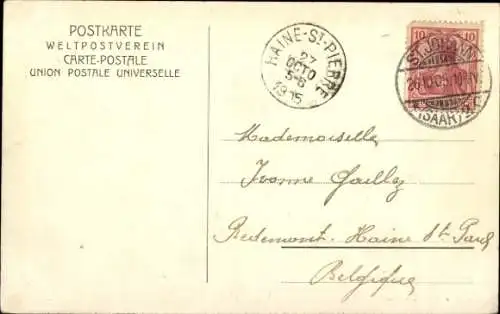 POSTKARTE
WELTPOSTVEREIN
CARTE-POSTALE
UNION POSTALE UNIVERSELLE
HAINE-ST-PIERRE
27
OCTO
5-6
1905
10 10
ST. JOHANN
(SAAR)
Mademoiselle
Yvonne Gaillez
Redemont. Haine St. Paul
Belgique